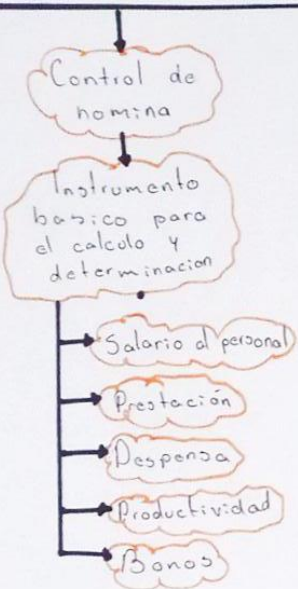 Control de
nomina
Instrumento
basico para
el calculo y
determinacion
Salario al personal
Prestación
Despensa
Productividad
Bonos